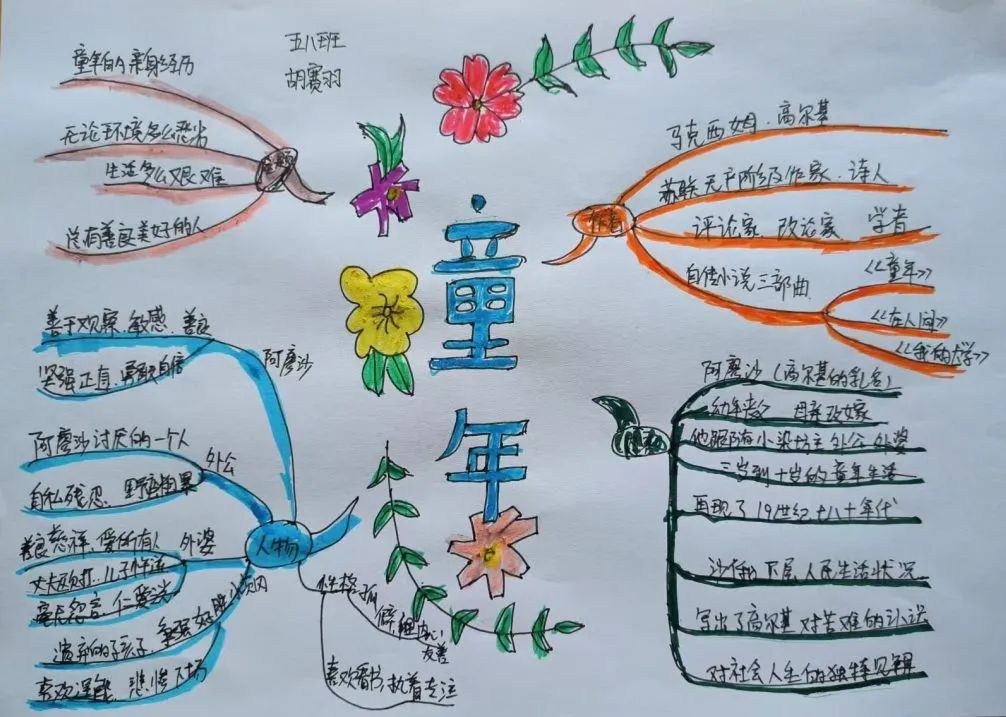 五八班
胡赛羽
童年
童年的亲身经历
无论环境多么恶劣
生活多么艰难
总有善良美好的人
作者
马克西姆·高尔基
苏联无产阶级作家、诗人
评论家 政论家 学者
自传小说三部曲
《童年》
《在人间》
《我的大学》
阿廖沙(高尔基的乳名)
母亲改嫁
他跟随小染坊主外公外婆
三岁到十岁的童年生活
再现了19世纪七八十年代
沙俄下层人民生活状况
写出了高尔基对苦难的认识
对社会人生的独特见解
人物
阿廖沙
善于观察、敏感、善良
坚强正直、勇敢自信
外公
阿廖沙讨厌的一个人
自私残忍、野蛮粗暴
外婆
善良慈祥、爱所有人
小茨冈
争强好胜
喜欢逞能、悲惨下场
性格孤僻、细心、
友善
喜欢看书、执着专注